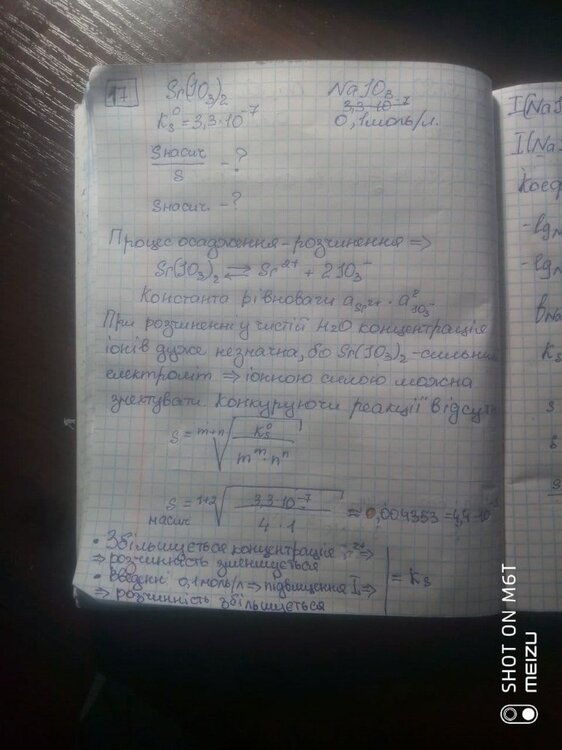 17 Sr(IO₃)₂ NaIO₃
Kₛ⁰ = 3,3·10⁻⁷ 3,3·10⁻⁷
0,1 моль/л.
Sнасич / S - ?
Sнасич. - ?
Процес осадження-розчинення ⇒
Sr(IO₃)₂ ⇄ Sr²⁺ + 2IO₃⁻
Константа рівноваги a Sr²⁺ · a² IO₃⁻
При розчиненні у чистій H₂O концентрація
іонів дуже незначна, бо Sr(IO₃)₂ - сильний
електроліт ⇒ іонною силою можна
знехтувати. Конкуруючи реакції відсутн
S = ᵐ⁺ⁿ√(Kₛ⁰ / mᵐ·nⁿ)
S насич = ¹⁺²√(3,3·10⁻⁷ / 4·1) ≈ 0,004353 = 4,4·10⁻³
• Збільшується концентрація ⇒
⇒ розчинність зменшується
• введенні 0,1 моль/л ⇒ підвищення I ⇒
⇒ розчинність збільшується
= Kₛ
I(Na
I(Na
Коеф
-lg
-lg
Kₛ
S
SHOT ON M6T
MEIZU